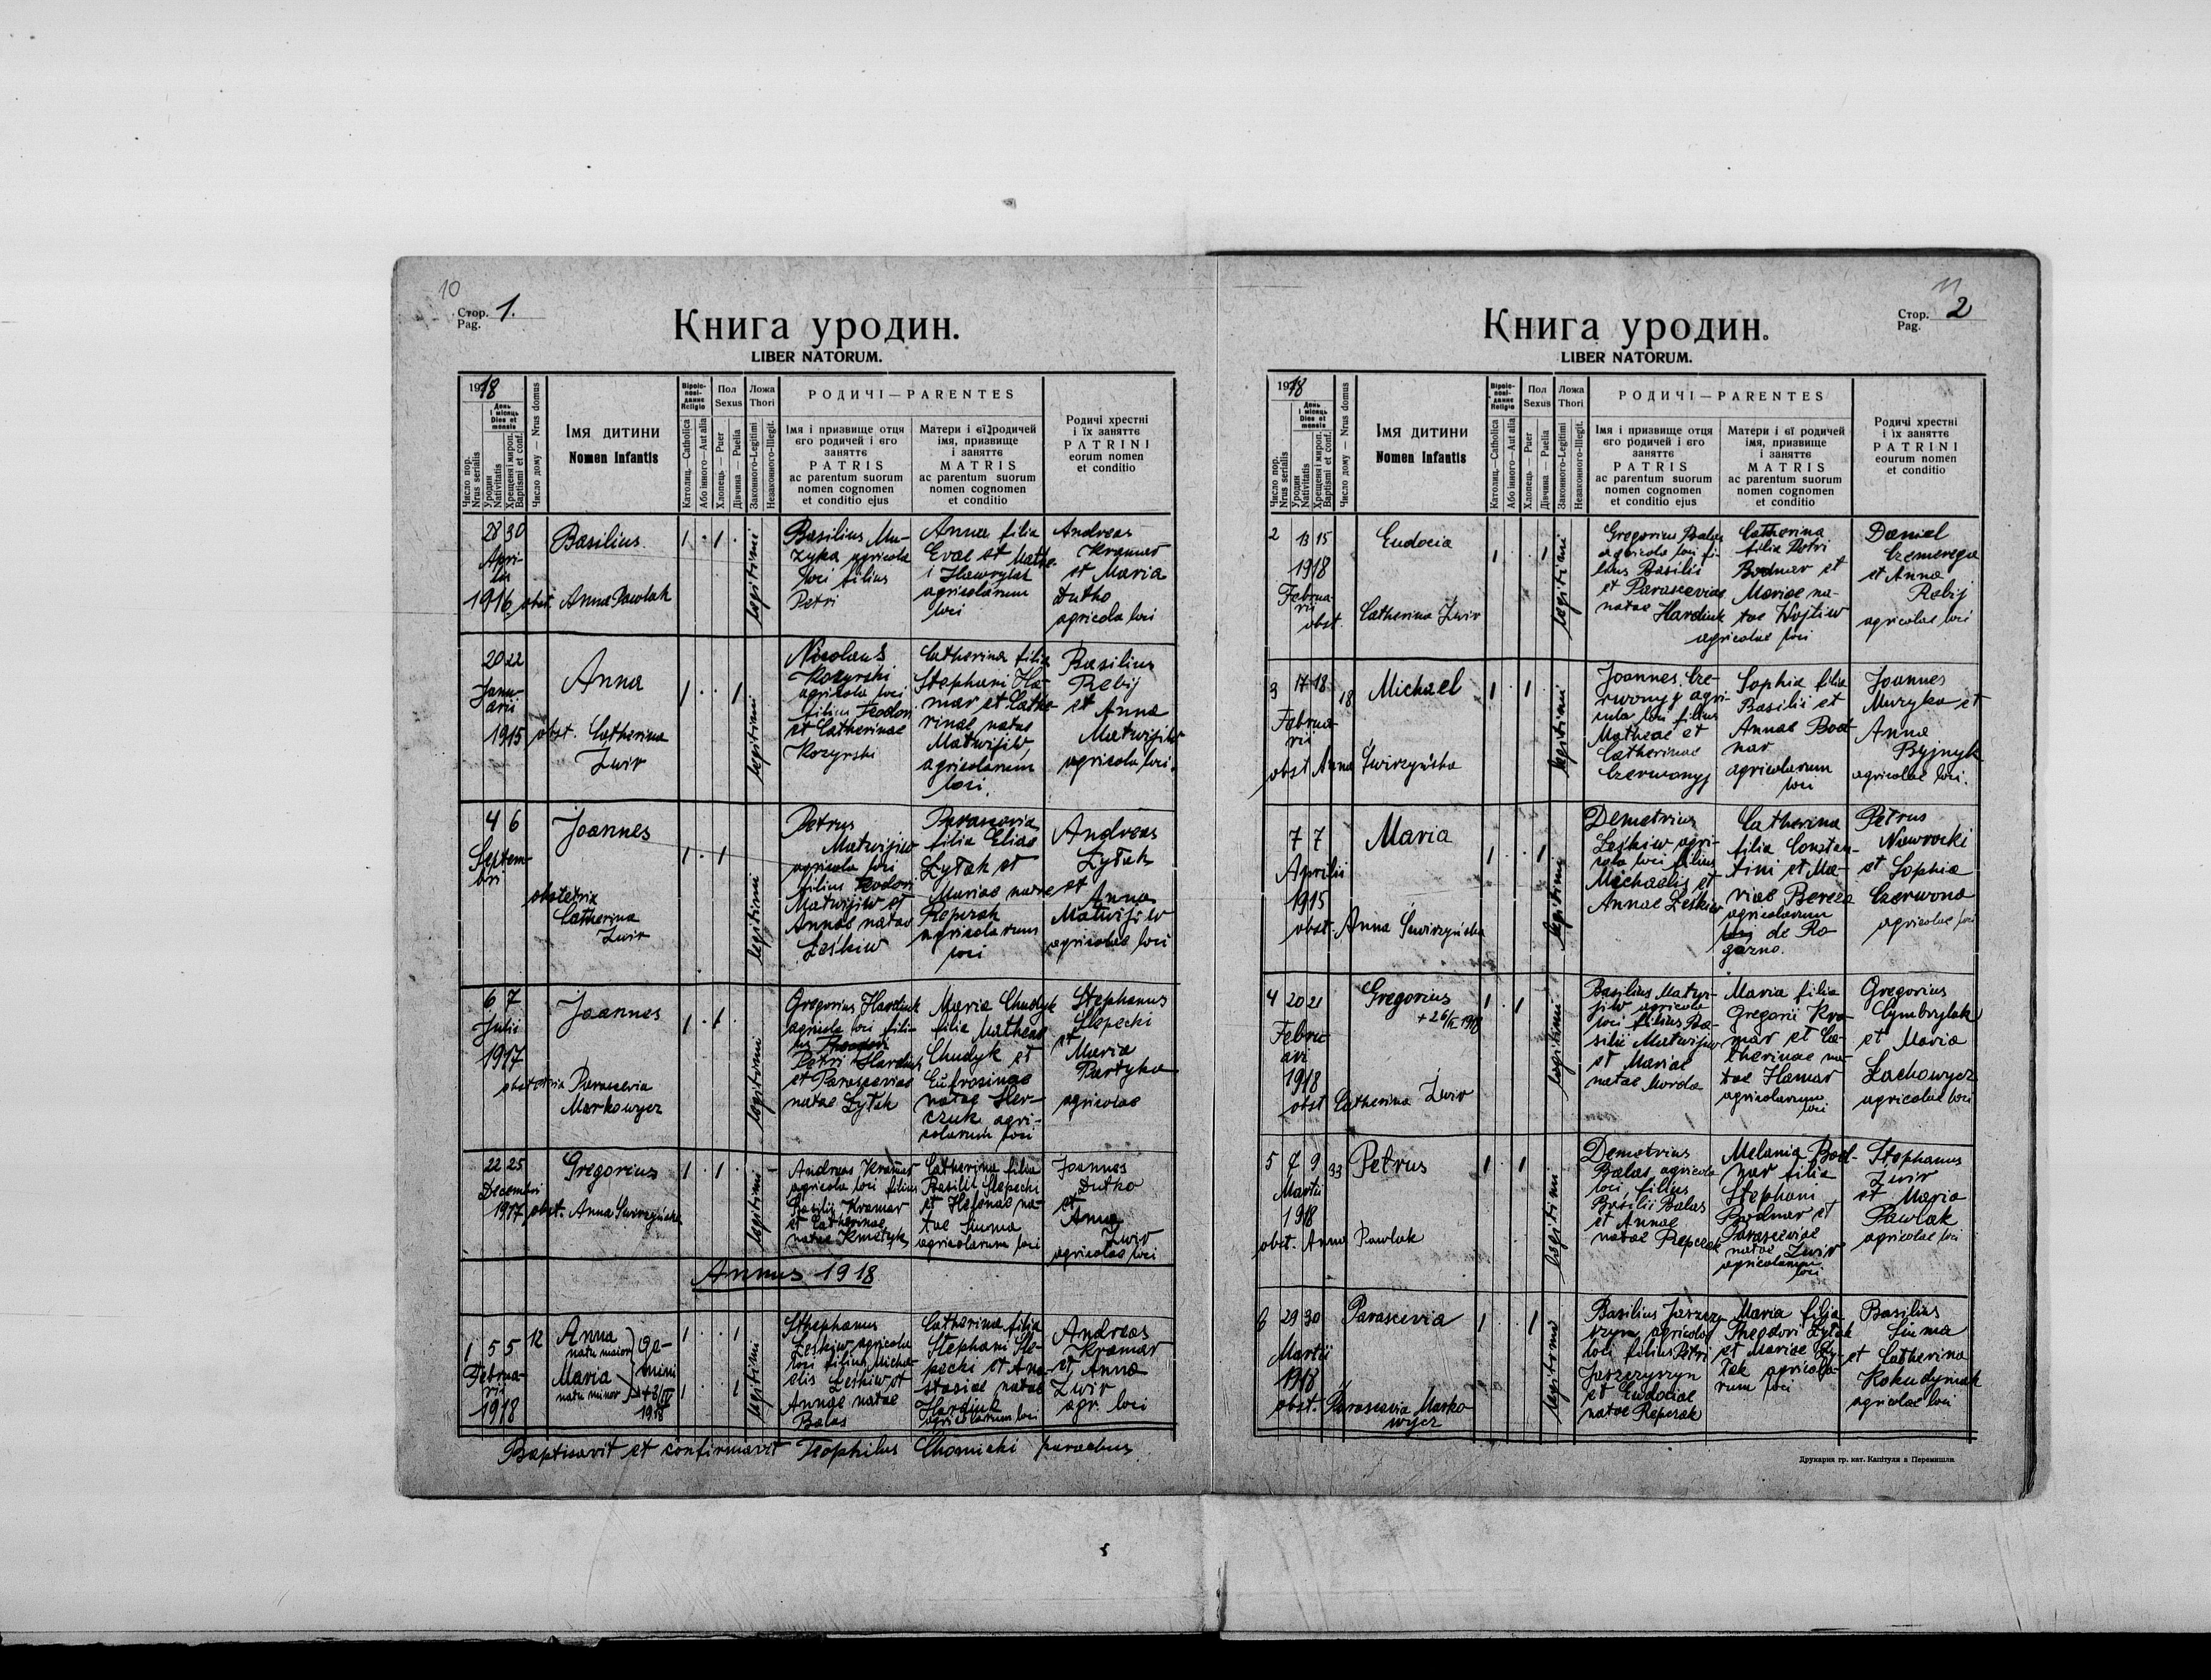 10
Стор. 1.
Pag.
Книга уродин.
LIBER NATORUM.
1918
Число пор.
Nrus serialis
День
і місяць
Dies et
mensis
Уродин
Nativitatis
Хрещеня і мироп.
Baptismi et conf.
Число дому — Nrus domus
ІМЯ ДИТИНИ
Nomen Infantis
Віроіспо-
відание
Religio
Католиц.—Catholica
Або інного—Aut alia
Пол
Sexus
Хлопець — Puer
Дівчина — Puella
Ложа
Thori
Законного-Legitimi
Незаконного-Illegit.
РОДИЧІ — PARENTES
Імя і призвище отця
єго родичей і єго
заняттє
PATRIS
ac parentum suorum
nomen cognomen
et conditio ejus
Матери і єї родичей
імя, призвище
і заняттє
MATRIS
ac parentum suorum
nomen cognomen
et conditio
Родичі хрестні
і їх заняттє
PATRINI
eorum nomen
et conditio
28 30
Apri-
lis
1916
Basilius
obst. Anna Pawlak
1 . 1 .
legitimi
Basilius Mu-
zyka agricola
loci filius
Petri
Anna filia
Evae et Mathe-
i Hawrylak
agricolarum
loci
Andreas
Kramar
et Maria
Dutko
agricola loci
20 22
Janu-
arii
1915
Anna
obst. Catherina
Zwir
1 . . 1
legitimi
Nicolaus
Kozyrski
agricola loci
filius Teodori
et Catherinae
Kozyrski
Catherina filia
Stephani Ha-
mar et Cathe-
rinae natae
Matwijiw,
agricolarum
loci.
Basilius
Rebij
et Anna
Matwijiw
agricola loci.
4 6
Septem-
bri
Joannes
obstetrix
Catherina
Zwir
1 . 1
legitimi
Petrus
Matwijiw
agricola loci
filius Teodori
Matwijiw et
Annae natae
Leśkiw
Parascevia
filia Eliae
Łytak et
Mariae natae
Repczak
agricolarum
loci
Andreas
Łytak
et
Anna
Matwijiw
agricolae loci
6 7
Julii
1917
Joannes
obstetrix Parascevia
Markowycz
1 . 1
legitimi
Gregorius Harduk
agricola loci fili-
us Theodori
Petri Harduk
et Parasceviae
natae Łytak
Maria Chudyk
filia Matheae
Chudyk et
Eufrosinae
natae Her-
czuk agri-
colarum loci
Stephanus
Slepecki
et
Maria
Partyka
agricolae
22 25
Decembri
1917
Gregorius
obst. Anna Swirzyńska
1 . 1 .
legitimi
Andreas Kramar
agricola loci filius
Basilii Kramar
et Catherinae
natae Kmetyk
Catherina filia
Basilii Slepecki
et Helenae na-
tae Siuma
agricolarum loci
Joannes
Dutko
et
Anna
Zwir
agricolae loci
Annus 1918
1 5 5 12
Februa-
rii
1918
Anna
natu maior
Maria
natu minor
Ge-
mini
+3/IV
1918
1 . . 1
1 . . 1
legitimi
Sthephanus
Leskiw agricola
loci filius Micha-
elis Leskiw et
Annae natae
Balas
Catherina filia
Stephani Sle-
pecki et Ana-
stasiae natae
Harduk
agricolarum loci
Andreas
Kramar
et Anna
Zwir
agr. loci
Baptisavit et confirmavit Teophilus Chomicki parochus
11
Стор. 2
Pag.
Книга уродин.
LIBER NATORUM.
1918
Число пор.
Nrus serialis
День
і місяць
Dies et
mensis
Уродин
Nativitatis
Хрещеня і мироп.
Baptismi et conf.
Число дому — Nrus domus
ІМЯ ДИТИНИ
Nomen Infantis
Віроіспо-
відание
Religio
Католиц.—Catholica
Або інного—Aut alia
Пол
Sexus
Хлопець — Puer
Дівчина — Puella
Ложа
Thori
Законного-Legitimi
Незаконного-Illegit.
РОДИЧІ — PARENTES
Імя і призвище отця
єго родичей і єго
заняттє
PATRIS
ac parentum suorum
nomen cognomen
et conditio ejus
Матери і єї родичей
імя, призвище
і заняттє
MATRIS
ac parentum suorum
nomen cognomen
et conditio
Родичі хрестні
і їх заняттє
PATRINI
eourum nomen
et conditio
2 13 15
1918
Februa-
rii
obst.
Eudocia
Catherina Zwir
1 . . 1
legitimi
Gregorius Balas
agricola loci fi-
lius Basilii
et Parasceviae
natae Harduk
Catherina
filia Petri
Bodnar et
Mariae na-
tae Wojtiw
agricolae loci
Daniel
Czemerega
et Anna
Rebij
agricolae loci
3 17 18 18
Februa-
rii
Michael
obst Anna Swirzyńska
1 . 1
legitimi
Joannes Cze-
rwonyj agri-
cola loci filius
Matheae et
Catherinae
Czerwonyj
Sophia filia
Basilii et
Annae Bod-
nar
agricolarum
loci
Joannes
Muzyka et
Anna
Byjnyk
agricolae loci.
7 7
Aprilii
1915
Maria
obst. Anna Swirzyńska
1 . . 1
legitimi
Demetrius
Leśkiw agri-
cola loci filius
Michaelis et
Annae Leśkiw
Catherina
filia Constan-
tini et Ma-
riae Bereza
agricolarum
loci de Ro-
gozno.
Petrus
Nawrocki
et Sophia
Czerwona
agricolae loci
4 20 21
Febru-
arii
1918
Gregorius
+26/II 1918
obst Catherina Zwir
1 . 1
legitimi
Basilius Matwi-
jiw agricola
loci filius Ba-
silii Matwijiw
et Mariae
natae Morda
Maria filia
Gregorii Kra-
mar et Ca-
therinae na-
tae Hamar
agricolarum
loci
Gregorius
Cymbrylak
et Maria
Lachowycz
agricolae loci
5 7 9 33
Martii
1918
Petrus
obst. Anna Pawlak
1 . 1
legitimi
Demetrius
Balas agricola
loci, filius
Basilii Balas
et Annae
natae Repczak
Melania Bod-
nar filia
Stephani
Bodnar et
Parasceviae
natae Zwir
agricolarum
loci
Stephanus
Zwir
et Maria
Pawlak
agricolae loci
6 29 30
Martii
1918
Parascevia
obst. Parascevia Marko-
wycz
1 . . 1
legitimi
Basilius Jaszczy-
szyn agricola
loci filius Petri
Jaszczyszyn
et Eudociae
natae Repczak
Maria filia
Theodori Łytak
et Mariae Ły-
tak agricola-
rum loci
Basilius
Siuma
et Catherina
Kokudyniak
agricolae loci
Друкарня гр. кат. Капітули в Перемишли